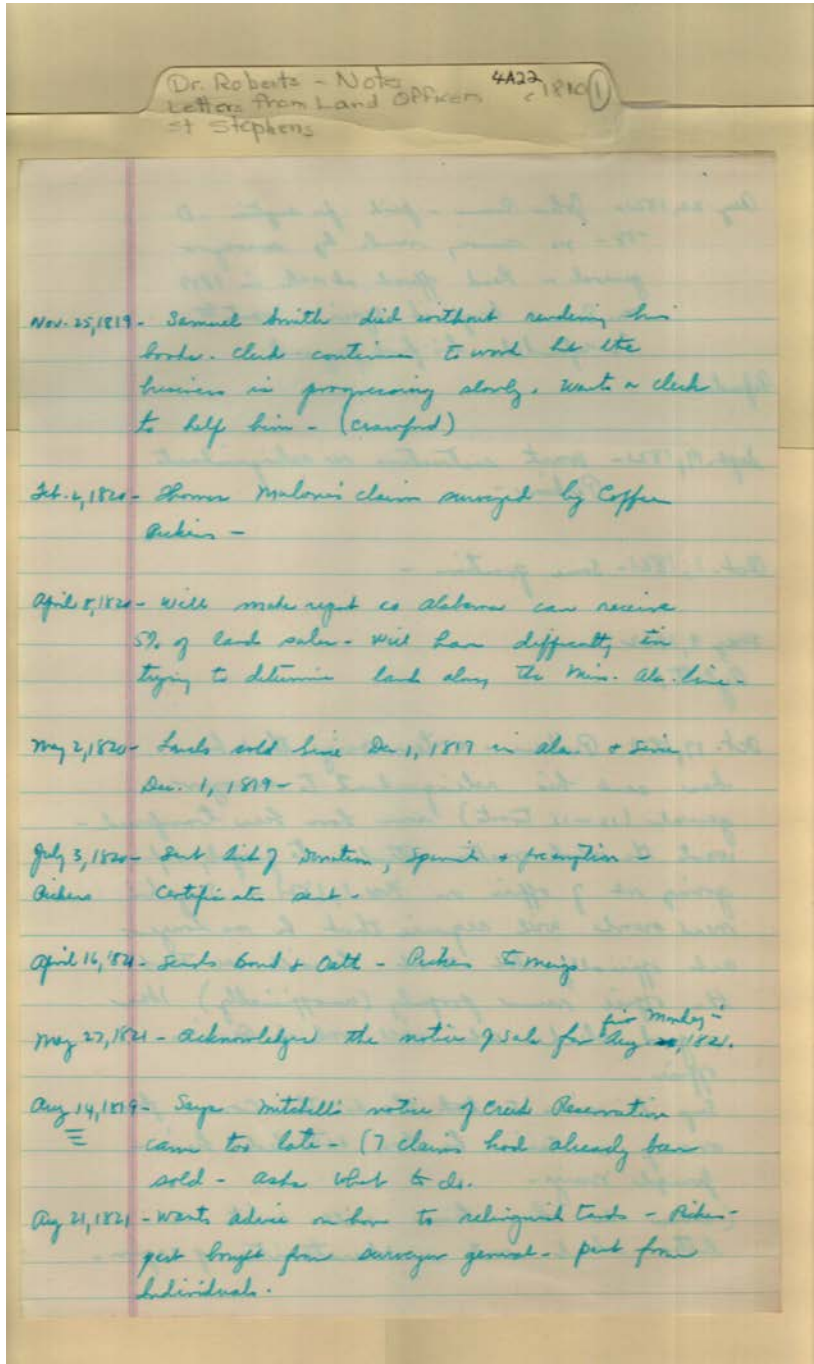 Dr. Roberts - Notes 4A22 1810 (1)
Letters from Land Officers
St Stephens
Nov. 25, 1819 - Samuel Smith died without rendering his
books. Clerk continues to work but the
business is progressing slowly. Wants a clerk
to help him - (Crawford)
Feb. 2, 1820 - Thomas Malone's claim surveyed by Coffee
Pickens -
April 8, 1820 - Will make report so Alabama can receive
5% of land sales. Will have difficulty in
trying to determine land along the Miss. Ala. line.
May 2, 1820 - Lands sold since Dec 1, 1817 in Ala. + since
Dec. 1, 1819 -
July 3, 1820 - Sent list of Donation, Spanish + preemption
Pickens certificates sent.
April 16, '21 - Sends Bond + Oath - Pickens to Meigs
May 27, 1821 - Acknowledged the notice of sale for Aug , 1821.
first Monday -
Aug 14, 1819 - Says Mitchell's notice of Creek Reservation
came too late - (7 claims had already been
sold - asks what to do.
Aug 21, 1821 - Wants advice on how to relinquish lands - Pickens -
part bought from surveyor general - part from
Individuals.